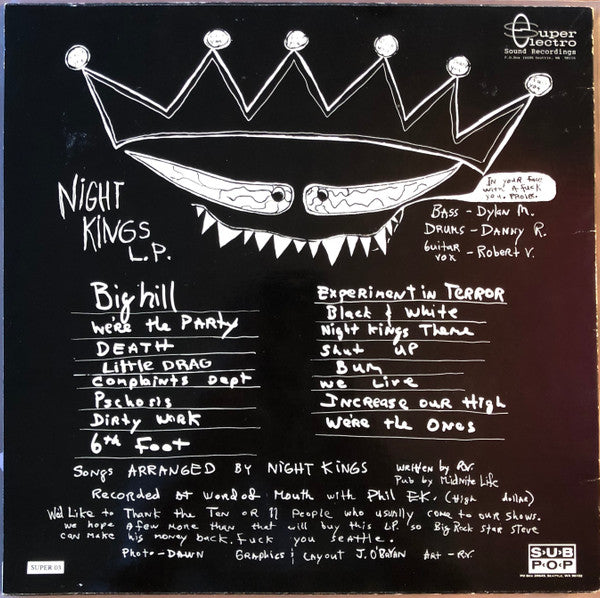 Super
Electro
Sound Recordings
IN YOUR FACE
WITH A FUCK
YOU. PROLE.
NIGHT
KINGS
L.P.
BASS - DYLAN M.
DRUMS - DANNY R.
Guitar
VOX - ROBERT V.
Big hill
We're the PARTY
DEATH
Little DRAG
Complaints Dept
Pschosis
Dirty work
6th Foot
Experiment in Terror
Black & White
Night Kings Theme
Shut UP
Bum
We Live
Increase our High
We're the Ones
Songs ARRANGED BY NIGHT KINGS written by R.V.
Pub by Midnite Life
Recorded at word of Mouth with Phil EK. (High dollar)
We'd Like to Thank the Ten or 11 People who usually come to our shows.
we hope a few more than that will buy this LP. so Big Rock Star Steve
can make his money back. Fuck you Seattle.
Photo - DAWN Graphics & Layout J. O'BRYAN Art - R.V.
SUPER 03
SUB
POP